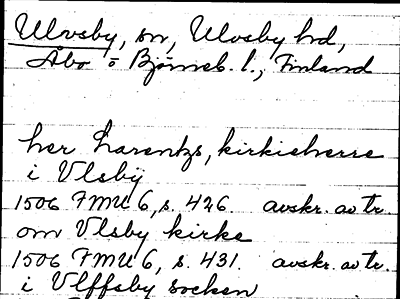 Ulvsby, sn, Ulvsby hd,
Åbo o Björneb. l., Finland
her Larentzs, kirkieherre
i Vlsby
1506 FMU 6, s. 426. avskr. av tr.
om Vlsby kirke
1506 FMU 6, s. 431. avskr. av tr.
i Vlffsby socken